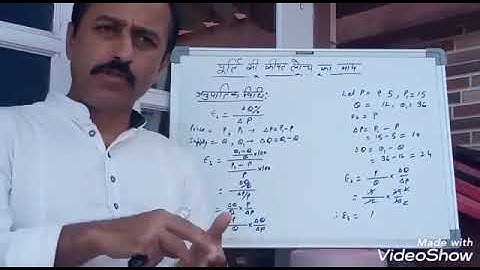 पूर्ति की कीमत लोच का माप
अनुपातिक विधि:
ΔQ%
ΔP
Price = P, P₁ → ΔP = P₁-P
Supply = Q, Q₁ → ΔQ = Q₁-Q
Q₁-Q
Q ×100
P₁-P
P ×100
= ΔQ/Q
ΔP/P
= ΔQ/Q × P/ΔP
P/Q × ΔQ/ΔP
Let P = 5, P₁=15
Q = 12, Q₁=36
= ?
ΔP = P₁-P
= 15-5 = 10
ΔQ = Q₁-Q
= 36-12 = 24
= P/Q × ΔQ/ΔP
Made with
VideoShow